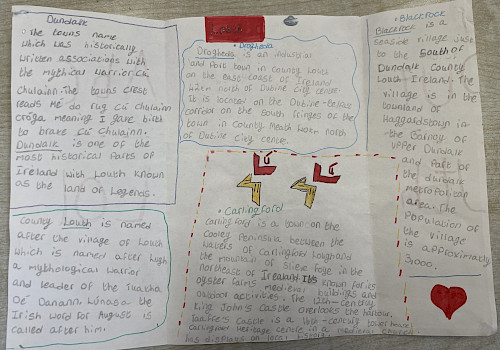 Dundalk
• the towns name
which was historically
written associations with
the mythical warrior Cú
Chulainn. The towns crest
reads Mé do rug Cú chulainn
cróga meaning I gave birth
to brave Cú Chulainn.
Dundalk is one of the
most historical parts of
Ireland with Louth known
as the land of Legends.
County Louth is named
after the village of Louth
which is named after Lugh
a mythological warrior
and leader of the Tuatha
Dé Danann. Lúnasa the
Irish word for August is
called after him.
Louth
• Drogheda
Drogheda is an industrial
and Port town in County Louth
on the east coast of Ireland
north of Dubine City centre.
It is located on the Dubine-Belfast
corridor on the south fringes of the
town in County Meath north
of Dubine City centre.
• Carlingford
Carlingford is a town on the
Cooley Peninsula between the
waters of Carlingford Lough and
the mountain of Slieve foye in the
northeast of Ireland. Its known for its
oyster farms medieval buildings and
outdoor activities. The 12th-century
King John's Castle overlooks the harbour.
Taaffe's Castle is a 16th-century tower house
Carlingford heritage centre in a medieval church
has displays on local history.
• Blackrock
Blackrock is a
seaside village just
to the South of
Dundalk County
Louth Ireland. The
village is in the
townland of
Haggardstown in
the Barony of
upper Dundalk
and Part of
the dundalk
metropolitan
area. The
Population of
the village
is approximatly
3,000.